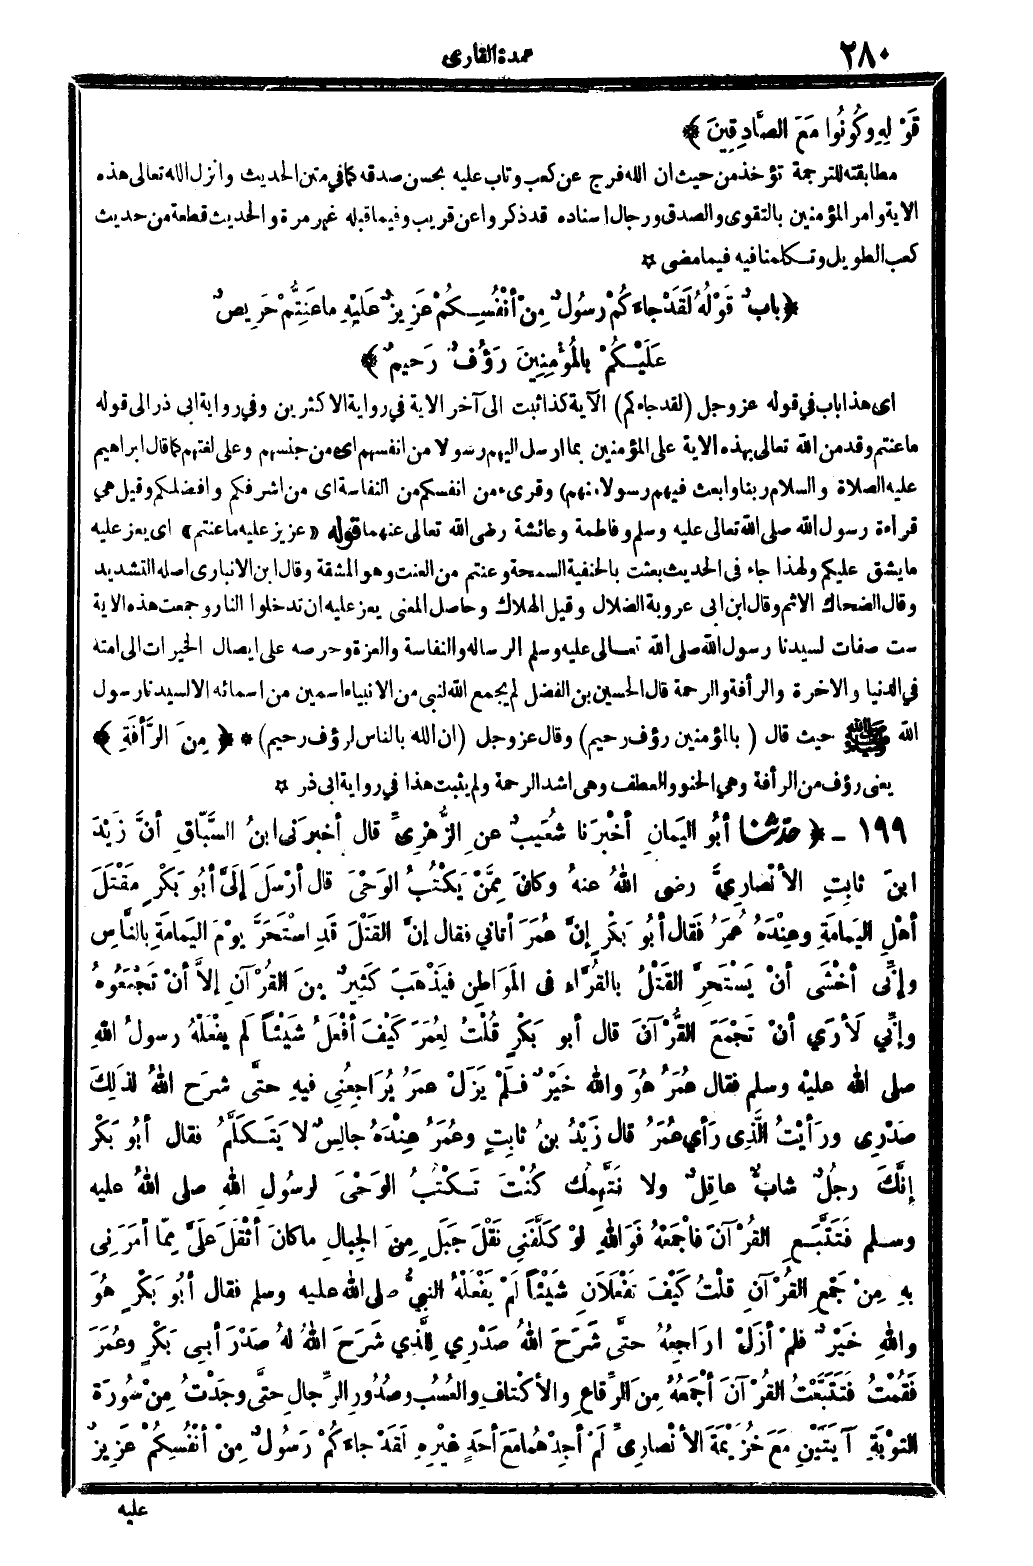 ٢٨٠
عمدة القارى
قَوْلِهِ وكُونُوا مَعَ الصَّادِقِينَ ﴾
مطابقته للترجمة تؤخذ من حيث ان الله فرج عن كعب وتاب عليه بحسن صدقه كما فى متن الحديث وانزل الله تعالى هذه
الاية وامر المؤمنين بالتقوى والصدق ورجال اسناده قد ذكروا عن قريب وفيما قبله غير مرة والحديث قطعة من حديث
كعب الطويل وتكلمنا فيه فيما مضى ☆
﴿ بابٌ قَوْلُهُ لَقَدْ جاءَكُمْ رسُولٌ مِنْ أنْفُسِكُمْ عَزِيزٌ عَلَيْهِ ماعَنِتُّمْ حَرِيصٌ
عَلَيْكُمْ بالْمُؤْمِنِينَ رَؤُفٌ رَحيمٌ ﴾
اى هذا باب فى قوله عز وجل (لقد جاءكم) الآية كذا ثبت الى آخر الاية فى رواية الاكثرين وفى رواية ابى ذر الى قوله
ما عنتم وقد من الله تعالى بهذه الاية على المؤمنين بما ارسل اليهم رسولا من انفسهم اى من جنسهم وعلى لغتهم كما قال ابراهيم
عليه الصلاة والسلام ربنا وابعث فيهم رسولا منهم) وقرىء من انفسكم من النفاسة اى من اشرفكم وافضلكم وقيل هى
قراءة رسول الله صلى الله تعالى عليه وسلم وفاطمة وعائشة رضى الله تعالى عنهما قوله «عزيز عليه ما عنتم» اى يعز عليه
ما يشق عليكم ولهذا جاء فى الحديث بعثت بالحنفية السمحة وعنتم من العنت وهو المشقة وقال ابن الانبارى اصله التشديد
وقال الضحاك الاثم وقال ابن ابى عروبة الضلال وقيل الهلاك وحاصل المعنى يعز عليه ان تدخلوا النار وجمعت هذه الاية
ست صفات لسيدنا رسول الله صلى الله تعالى عليه وسلم الرساله والنفاسة والعزة وحرصه على ايصال الخيرات الى امته
فى الدنيا والاخرة والرأفة والرحمة قال الحسين بن الفضل لم يجمع الله لنبى من الانبياء اسمين من اسمائه الا لسيدنا رسول
الله ﷺ حيث قال ( بالمؤمنين رؤف رحيم) وقال عز وجل (ان الله بالناس لرؤف رحيم) * ﴿ مِنَ الرَّأفَةِ ﴾
يعنى رؤف من الرأفة وهى الحنو والعطف وهى اشد الرحمة ولم يثبت هذا فى رواية ابى ذر ☆
١٩٩ - ﴿ حدثنا أبُو اليَمانِ أخْبَرَنا شُعَيبٌ عنِ الزُّهْرِىِّ قال أخبرَنى ابنُ السَّبّاقِ أنَّ زَيْدَ
ابنَ ثابِتٍ الأنْصارِىَّ رضى اللهُ عنهُ وكانَ مِمَّنْ يَكْتُبُ الوَحْىَ قال أرْسَلَ إلَىَّ أبُو بَكْرٍ مَقْتَلَ
أهْلِ اليَمامَةِ وعِنْدَهُ عُمَرُ فَقال أبُو بَكْرٍ إنَّ عُمَرَ أتانِي فقال إنَّ القَتْلَ قَدِ اسْتَحَرَّ يوْمَ اليَمامَةِ بالنَّاسِ
وإنِّى أخْشَى أنْ يَسْتَحِرَّ القَتْلُ بالقُرَّاءِ فى المَواطِنِ فيَذْهَبَ كَثِيرٌ مِنَ القُرْآنِ إلاَّ أنْ تَجْمَعُوهُ
وإنِّي لَأرَي أنْ تَجْمَعَ القُرْآنَ قال أبو بَكْرٍ قُلْتُ لِعُمَرَ كَيْفَ أفْعَلُ شَيْئاً لَم يفْعَلْهُ رسولُ اللهِ
صلى الله عليْه وسلم فقال عمَرُ هُوَ واللهِ خَيْرٌ فَلَمْ يَزَلْ عمَرُ يُرَاجِعُنِي فيهِ حتَّى شرَحَ اللهُ لذَلِكَ
صَدْرِى ورَأيْتُ الَّذِى رَأي عُمَرُ قال زَيْدُ بنُ ثابِتٍ وعُمَرُ عِنْدَهُ جالِسٌ لا يَتَكَلَّمُ فقال أبُو بَكْرٍ
إنَّكَ رجُلٌ شابٌّ عاقِلٌ ولا نَتَّهِمُكَ كُنْتَ تَكْتُبُ الوَحْىَ لرسُولِ اللهِ صلى اللهُ عليه
وسلم فَتَتَبَّعِ القُرْآنَ فاجْمَعْهُ فَوَاللهِ لوْ كَلَّفَنِي نَقْلَ جَبَلٍ مِنَ الجِبالِ ماكانَ أثْقَلَ عَلَىَّ مِمّا أمَرَنِى
بهِ مِنْ جَمْعِ القُرْآنِ قلْتُ كَيْفَ تَفْعَلَانِ شَيْئاً لَمْ يَفْعَلْهُ النبىُّ صلى الله عليه وسلم فقال أبُو بَكْرٍ هُوَ
واللهِ خَيْرٌ فلَمْ أزَلْ اراجِعُهُ حتَّى شَرَحَ اللهُ صَدْرِي لِلَّذِي شَرَحَ اللهُ لهُ صَدْرَ أبِى بَكْرٍ وعُمَرَ
فَقُمْتُ فَتَتَبَّعْتُ القُرْآنَ أجْمَعُهُ مِنَ الرِّقاعِ والأكْتافِ والعُسُبِ وصُدُورِ الرِّجالِ حتَّى وجَدْتُ مِنْ سُورَةِ
التوْبَةِ آيَتَيْنِ مَعَ خُزَيْمَةَ الأنْصارِىِّ لَمْ أجِدْهُما مَعَ أحَدٍ غيْرِهِ لَقَدْ جاءَكُمْ رَسُولٌ مِنْ أنْفُسِكُمْ عَزِيزٌ
عليه